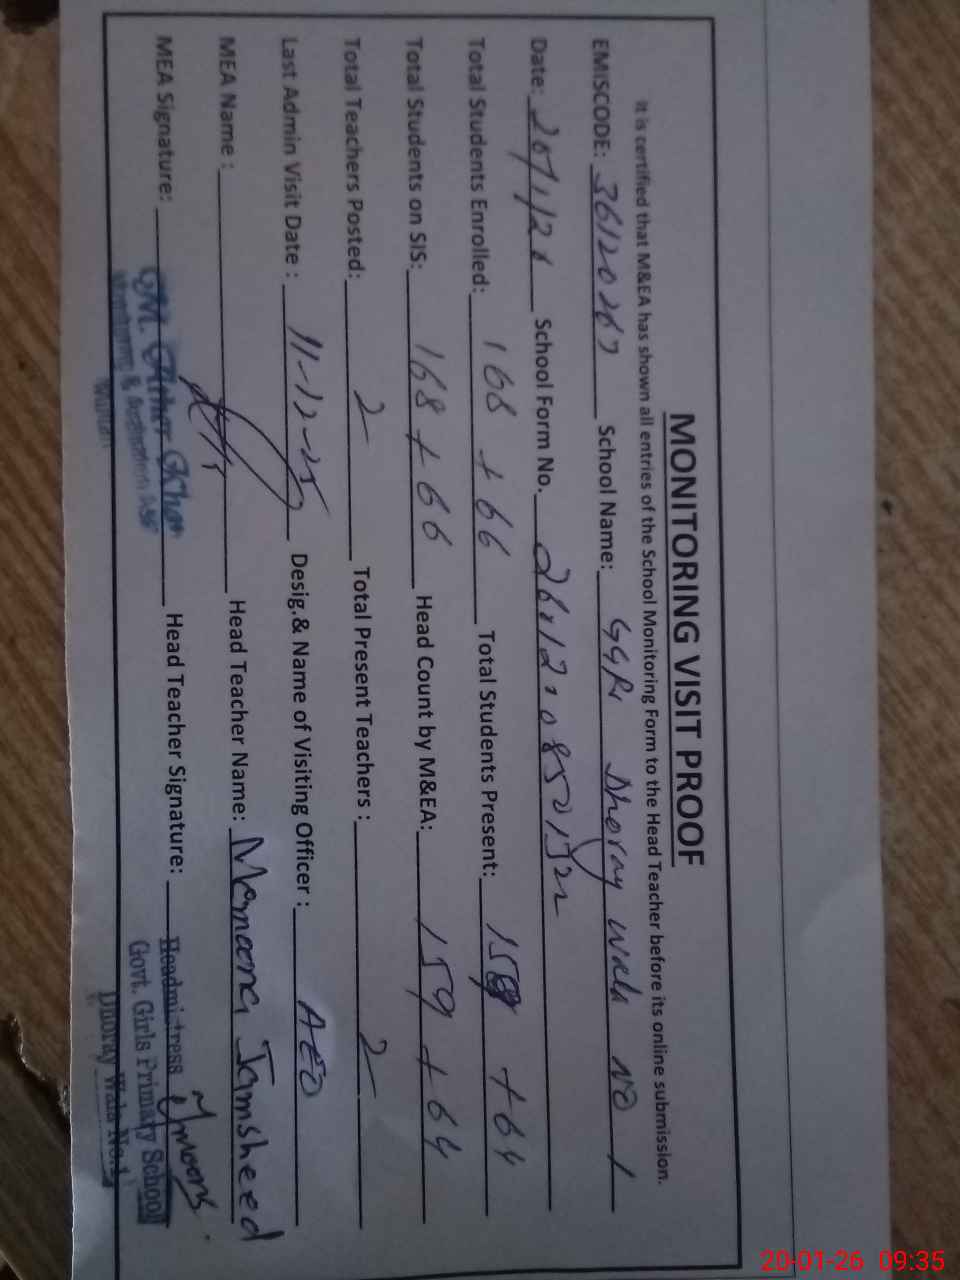 MONITORING VISIT PROOF
It is certified that M&EA has shown all entries of the School Monitoring Form to the Head Teacher before its online submission.
EMISCODE: 36120267 School Name: GGPS Dhoray wala NO 1
Date: 20/1/26 School Form No.
Total Students Enrolled: 168 + 66 Total Students Present: 159 + 64
Total Students on SIS: 168 + 66 Head Count by M&EA: 159 + 64
Total Teachers Posted: 2 Total Present Teachers : 2
Last Admin Visit Date : 11-12-25 Desig.& Name of Visiting Officer : AEO
MEA Name : Head Teacher Name: Memoona Jamsheed
MEA Signature: Head Teacher Signature:
Headmistress
Govt. Girls Primary School
Dhoray Wala No.1
Monitoring &
Multan
20-01-26 09:35